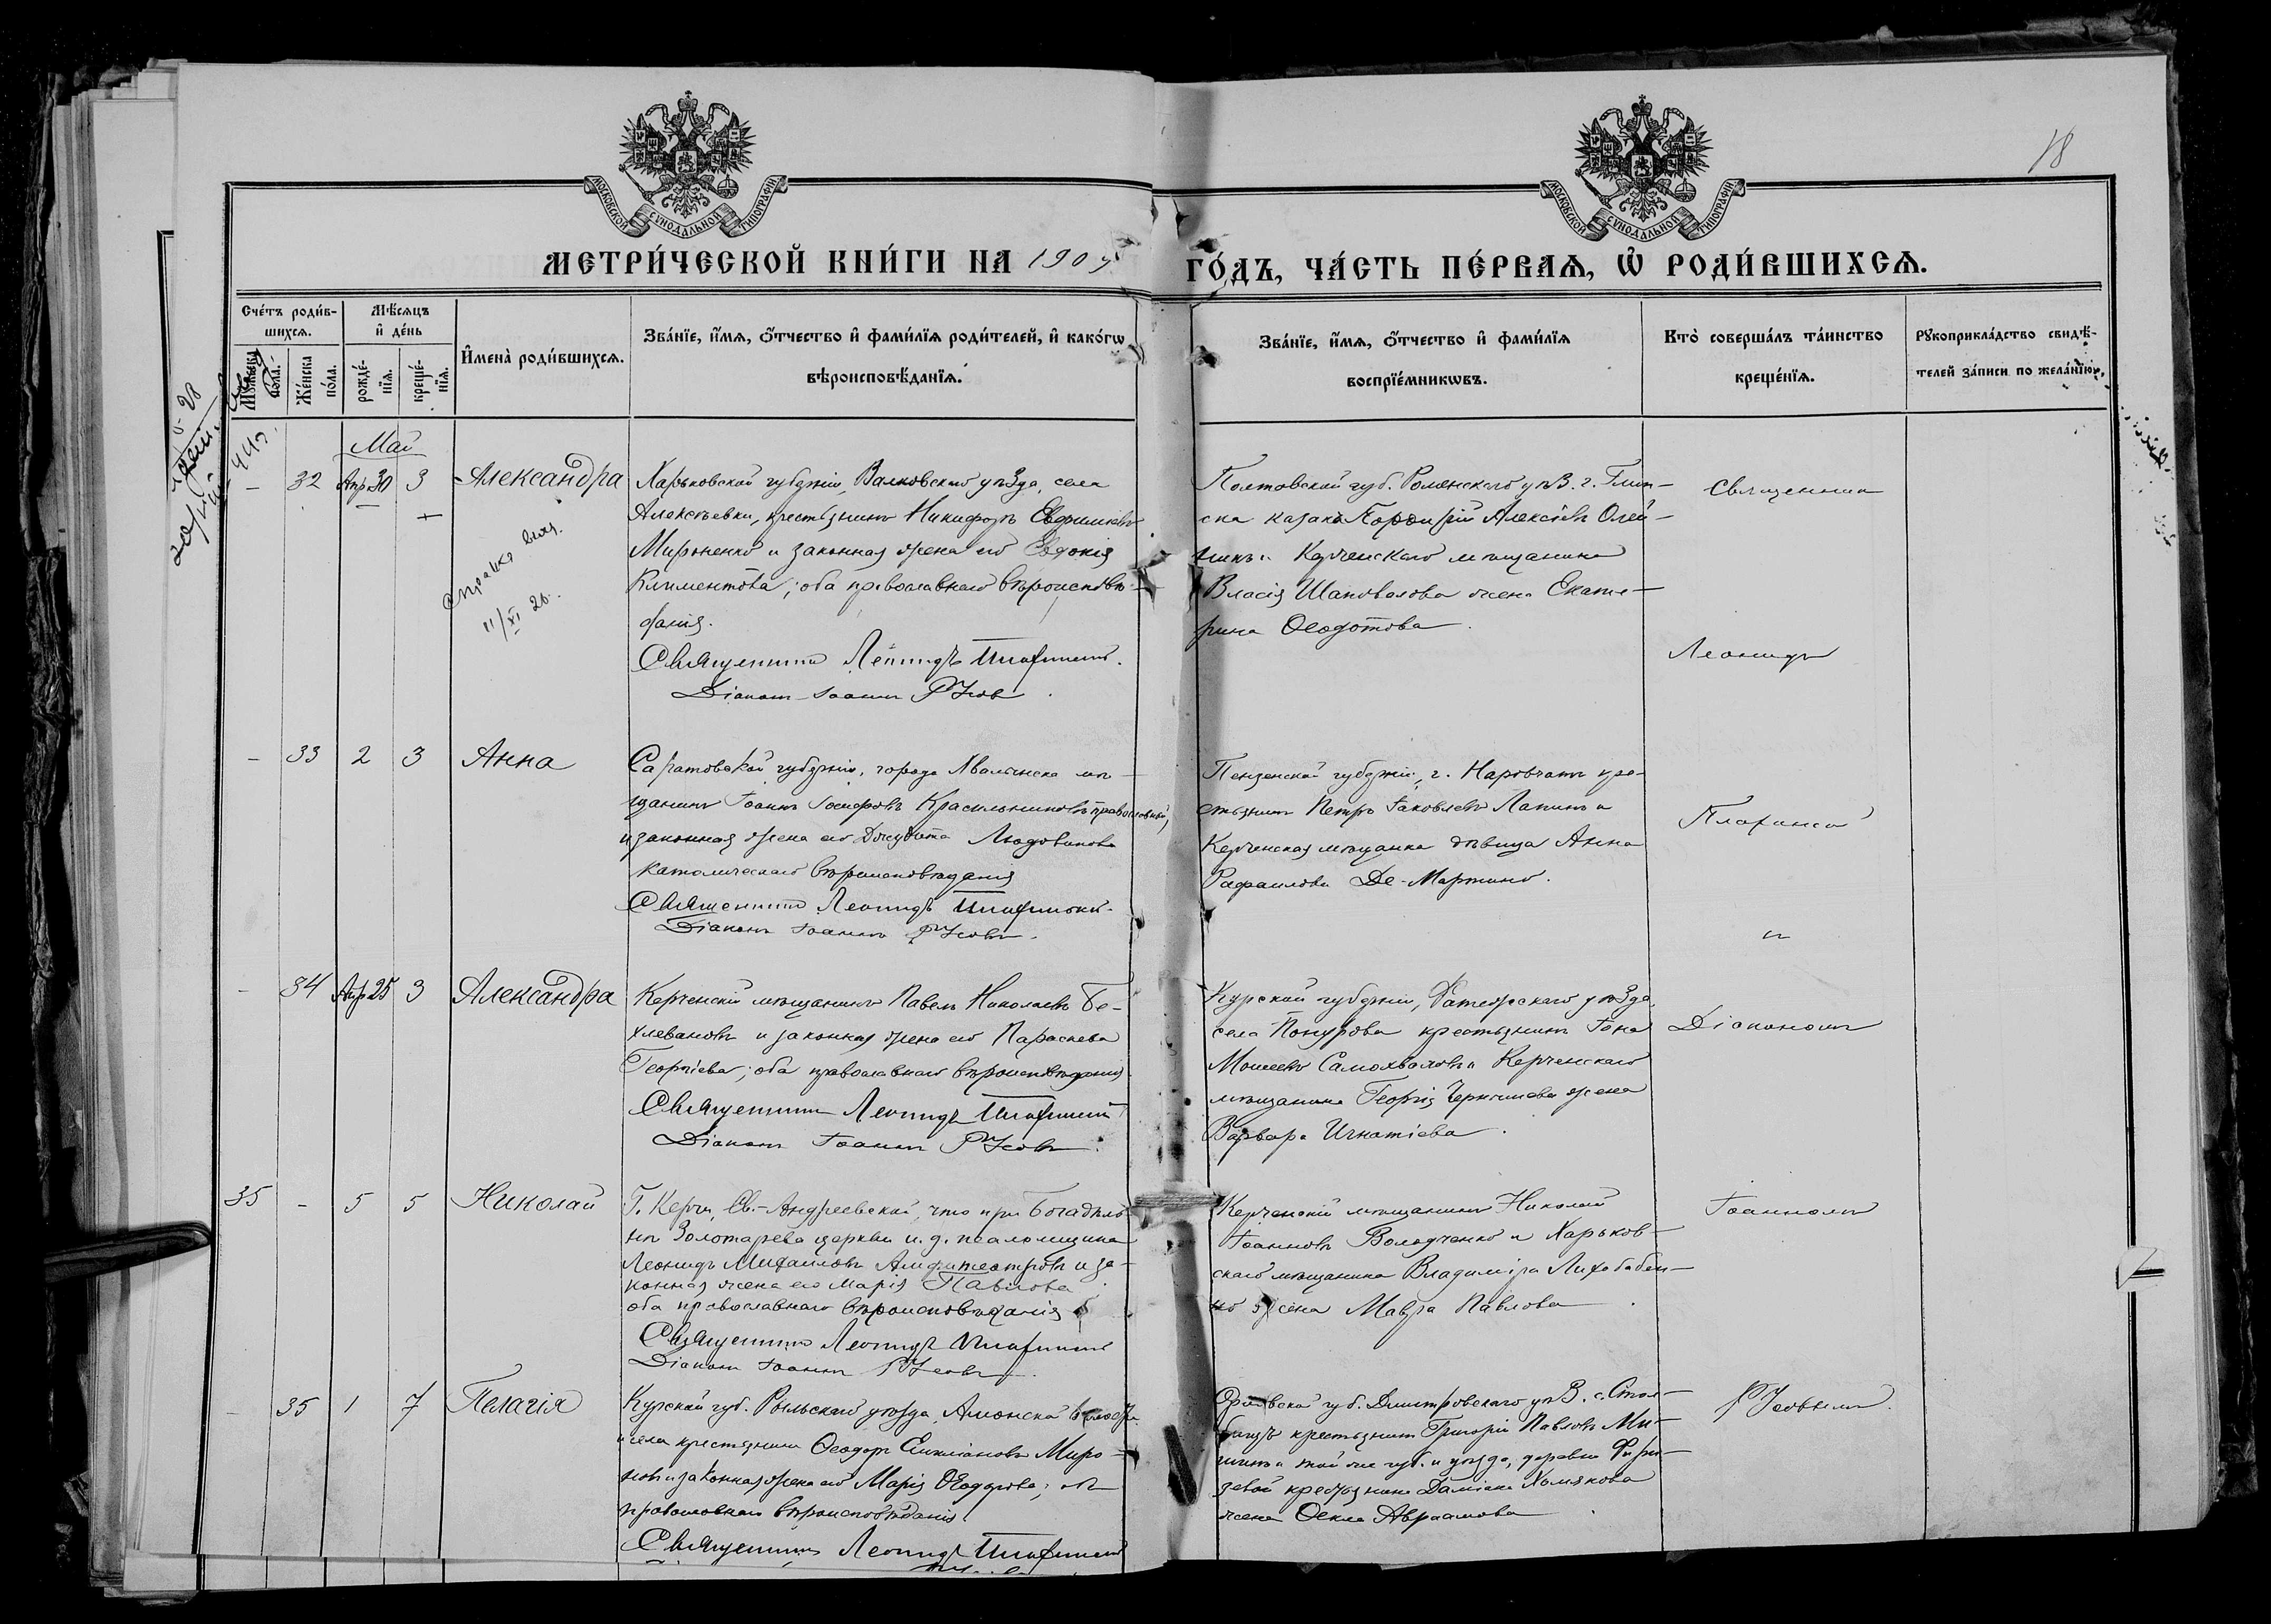 18
МОСКОВСКОЙ СУНОДАЛЬНОЙ ТИПОГРАФІИ
МОСКОВСКОЙ СУНОДАЛЬНОЙ ТИПОГРАФІИ
МЕТРИ́ЧЕСКОЙ КНИ́ГИ НА 190
ГО́ДЪ, ЧА́СТЬ ПЕ́РВАѦ, Ѡ҆ РОДИ́ВШИХСѦ.
Сче́тъ роди́в-
шихсѧ.
Мꙋ́жеска
по́ла.
Же́нска
по́ла.
Мѣ́сѧцъ
и҆ де́нь
рожде́-
нїѧ.
креще́-
нїѧ.
И҆мена̀ роди́вшихсѧ.
Зва́нїе, и҆́мѧ, ѻ҆́тчество и҆ фами́лїѧ роди́телей, и҆ како́гѡ
вѣроисповѣ́данїѧ.
Зва́нїе, и҆́мѧ, ѻ҆́тчество и҆ фами́лїѧ
воспрїе́мникѡвъ.
Кто̀ соверша́лъ та́инство
креще́нїѧ.
Рꙋкоприкла́дство свидѣ́-
телей за́писи по жела́нїю.
Май
– 32 Апр 30 3 Александра
справка
11/XI 26.
Харьковской губерніи, Валковскаго уѣзда, села
Алексѣевки, крестьянинъ Никифоръ Евфиміевъ
Мироненко и законная жена его Евдокія
Климентова; оба православнаго вѣроисповѣ-
данія.
Священникъ Леонидъ
Діаконъ Іоаннъ Русовъ.
Полтавской губ. Роменскаго уѣз. г. Глин-
ска казакъ Алексіевъ Олей-
никъ и Керченскаго мѣщанина
Власія Шаповалова жена Екате-
рина Ѳеодотова.
Священник
Леонидъ
– 33 2 3 Анна
Саратовской губерніи, города Хвалынска мѣ-
щанинъ Іоаннъ Іосифовъ Красильниковъ православный,
и законная жена его Людовикова
католическаго вѣроисповѣданія
Священникъ Леонидъ
Діаконъ Іоаннъ Русовъ.
Пензенской губерніи, г. Наровчатъ кре-
стьянинъ Петръ Іаковлевъ Лапинъ и
Керченская мѣщанка дѣвица Анна
Рафаилова Де-Мартино.
и
– 34 Апр 25 3 Александра
Керченскій мѣщанинъ Павелъ Николаевъ Бе-
хлевановъ и законная жена его Параскева
Георгіева; оба православнаго вѣроисповѣданія.
Священникъ Леонидъ
Діаконъ Іоаннъ Русовъ.
Курской губерніи, Фатежскаго уѣзда,
села крестьянинъ Іона
Моисеевъ Самохваловъ и Керченскаго
мѣщанина Георгія жена
Варвара Игнатіева.
Діакономъ
35 – 5 5 Николай
Г. Керчи, Св.-Андреевской, что при Богадѣль-
нѣ Золотарева церкви и. д. псаломщика
Леонидъ Михаиловъ Амфитеатровъ и за-
конная жена его Марія Павлова
оба православнаго вѣроисповѣданія
Священникъ Леонидъ
Діаконъ Іоаннъ Русовъ.
Керченскій мѣщанинъ Николай
Іоанновъ Володченко и Харьков-
скаго мѣщанина Владиміра Лихобабен-
ко жена Мавра Павлова.
Іоанномъ
– 35 1 7 Пелагія
Курской губ. Рыльскаго уѣзда, Амонской волости
и села крестьянинъ Ѳеодоръ Миро-
новъ и законная жена его Марія Ѳеодорова; оба
православнаго вѣроисповѣданія
Священникъ Леонидъ
Орловской губ. Дмитровскаго уѣз. с. Стол-
бищъ крестьянинъ Григорій Павловъ Ми-
шинъ и той же губ. и уѣзда, деревни
крестьянина Даміана Хомякова
жена Ѳекла Авраамова.
Русовымъ.